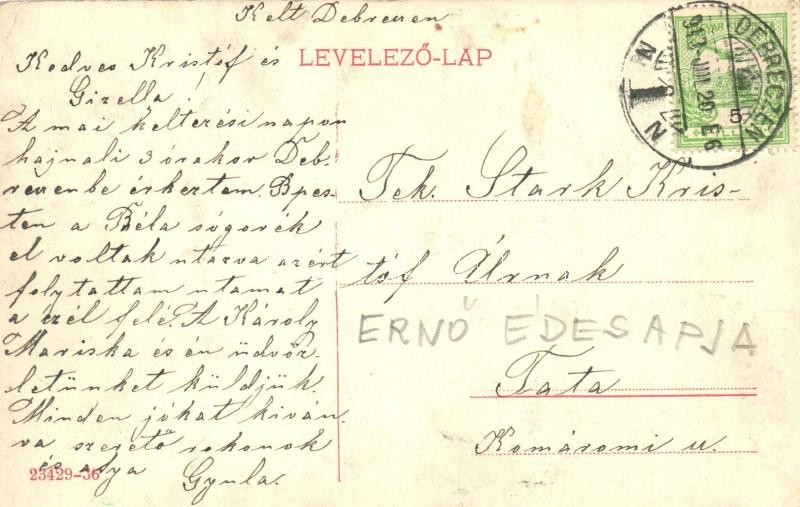 Kelt Debreczen
LEVELEZŐ-LAP
Kedves Kristóf és
Gizella!
A mai keltezési napon
hajnali 3 órakor Deb-
reczenbe érkeztem. Bpes-
ten a Béla sógorék
el voltak utazva azért
folytattam utamat
a czél felé. A Károly
Mariska és én üdvöz-
letünket küldjük.
Minden jókat kíván-
va szerető rokonok
és
Gyula.
23429-56
DEBRECZEN
Tek. Stark Kris-
tóf Úrnak
ERNŐ ÉDESAPJA
Tata
Komáromi u.